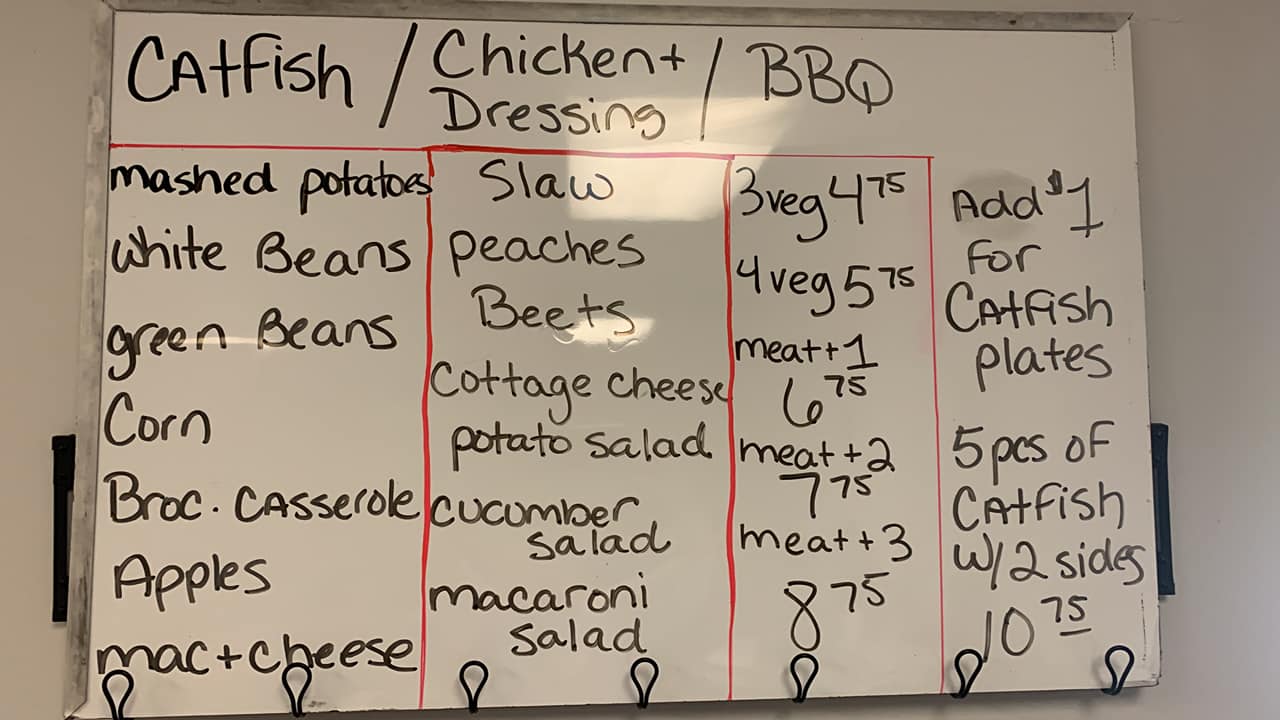 CAtfish / Chicken+ / BBQ
Dressing
mashed potatoes
white Beans
green Beans
Corn
Broc. CAsserole
Apples
mac+cheese
Slaw
peaches
Beets
Cottage cheese
potato salad
cucumber
salad
macaroni
salad
3veg 4 75
4veg 5 75
meat+1
6 75
meat+2
7 75
meat+3
8 75
Add $1
For
CAtfish
plates
5pcs of
CAtfish
w/2 sides
10 75